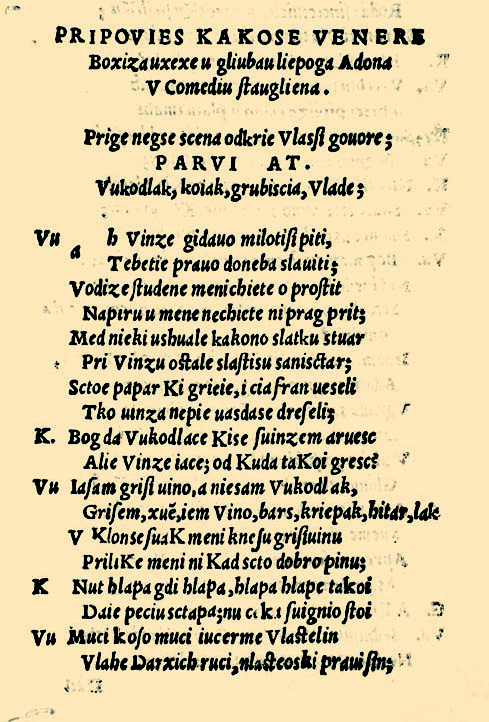 PRIPOVIES KAKOSE VENERE
Boxizauxexe u gliubau liepoga Adona
V Comediu ſtaugliena.
Prige negse scena odkrie Vlasſi gouore;
PARVI AT.
Vukodlak, koiak, grubiscia, Vlade;
Vu a h Vinze gidauo milotiſi piti,
Tebetie prauo doneba slauiti;
Vodize ſtudene menichiete o proſtit
Napiru u mene nechiete ni prag prit;
Med nieki ushuale kakono slatku stuar
Pri Vinzu oſtale slaſtisu sanisctar;
Sctoe papar Ki grieie, i ciafran ueseli
Tko uinza nepie uasdase dreſeli;
K. Bog da Vukodlace Kise ſuinzem aruesc
Alie Vinze iace; od Kuda taKoi gresc?
Vu Iasam griſi uino, a niesam Vukodlak,
Griſem, xuē, iem Vino, bars, kriepak, hitar, lak
V Klonse ſuaK meni kneſu griſiuinu
PriliKe meni ni Kad scto dobro pinu;
K Nut hlapa gdi hlapa, hlapa hlape takoi
Daie peciu sctapa; nu ſuignio ſtoi
Vu Muci koſo muci iucerme Vlaſtelin
Vlahe Darxich ruci, nlaſteoski prauiſin;